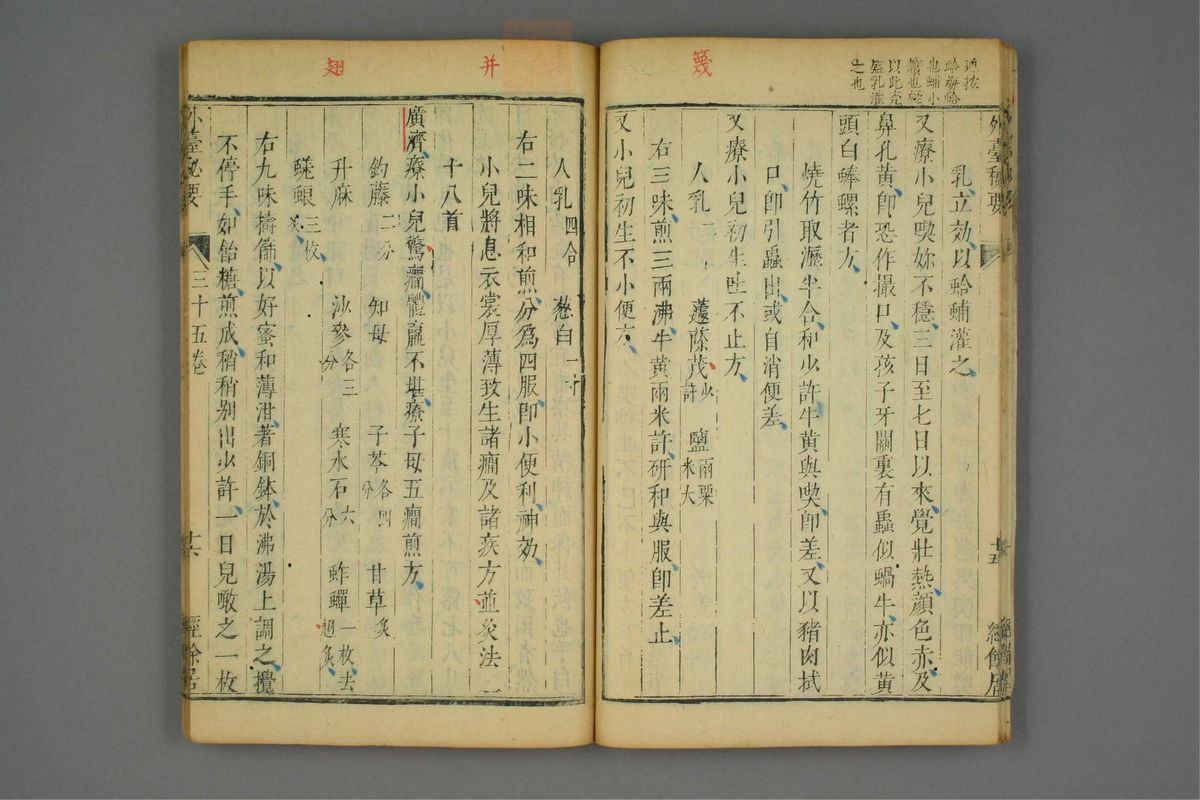 幾
外臺秘要
十五
經餘居
乳立効以蛤蜅灌之
又療小兒喫妳不穩三日至七日以來覺壯熱顔色赤及
鼻孔黄即恐作撮口及孩子牙關裏有蟲似蝸牛亦似黄
頭白蜯螺者方
燒竹取瀝半合和少許牛黄與喫即差又以豬肉拭
口即引蟲出或自消便差
又療小兒初生吐不止方
人乳二 蘧蒢茂少許 鹽兩粟米大
右三味煎三兩沸牛黄兩米許研和與服即差止
又小兒初生不小便方
并
翅
人乳四合 葱白一寸
右二味相和煎分爲四服即小便利神効
小兒將息衣裳厚薄致生諸癇及諸疾方並灸法一
十八首
廣濟療小兒驚癇體羸不堪療子母五癇煎方
鈎藤二分 知母 子芩各四分 甘草炙
升麻 沙參各三分 寒水石六分 蚱蟬一枚去翅炙
蜣蜋三枚炙
右九味擣篩以好蜜和薄泔著銅鉢於沸湯上調之攪
不停手如飴糖煎成稍稍别出少許一日兒啖之一枚
小臺秘要
三十五卷
十六
經餘居